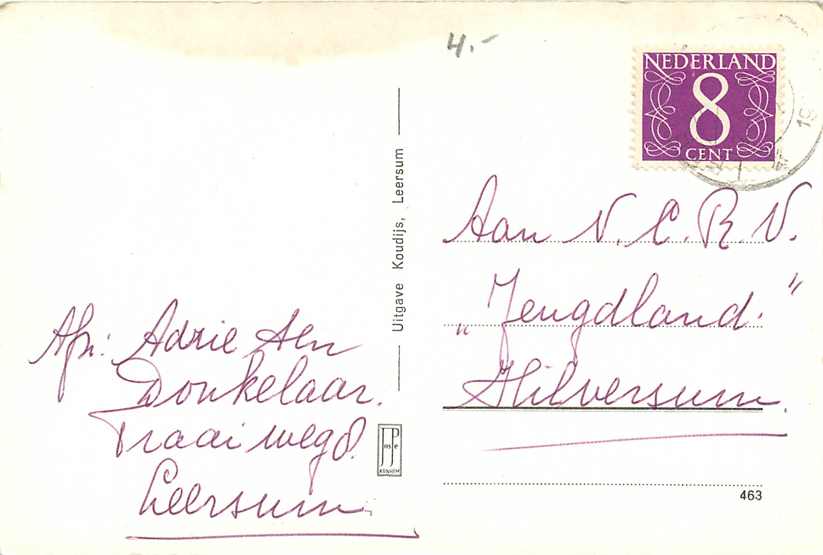 4.-
NEDERLAND
8
CENT
19
Uitgave Koudijs, Leersum
Aan N.C.R.V.
„Jeugdland."
Hilversum.
Afz: Adrie den
Donkelaar.
Draaiweg 8.
Leersum
463